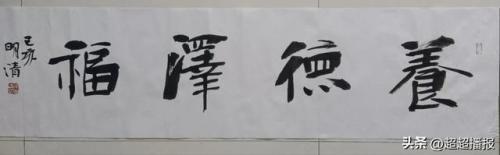 養德澤福
己亥
明清
头条@超超播报